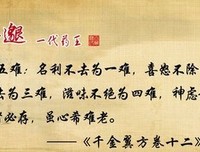 邈 一代药王
五难：名利不去为一难，喜怒不除
去为三难，滋味不绝为四难，神虑
必存，虽心希难老。
——《千金翼方卷十二》